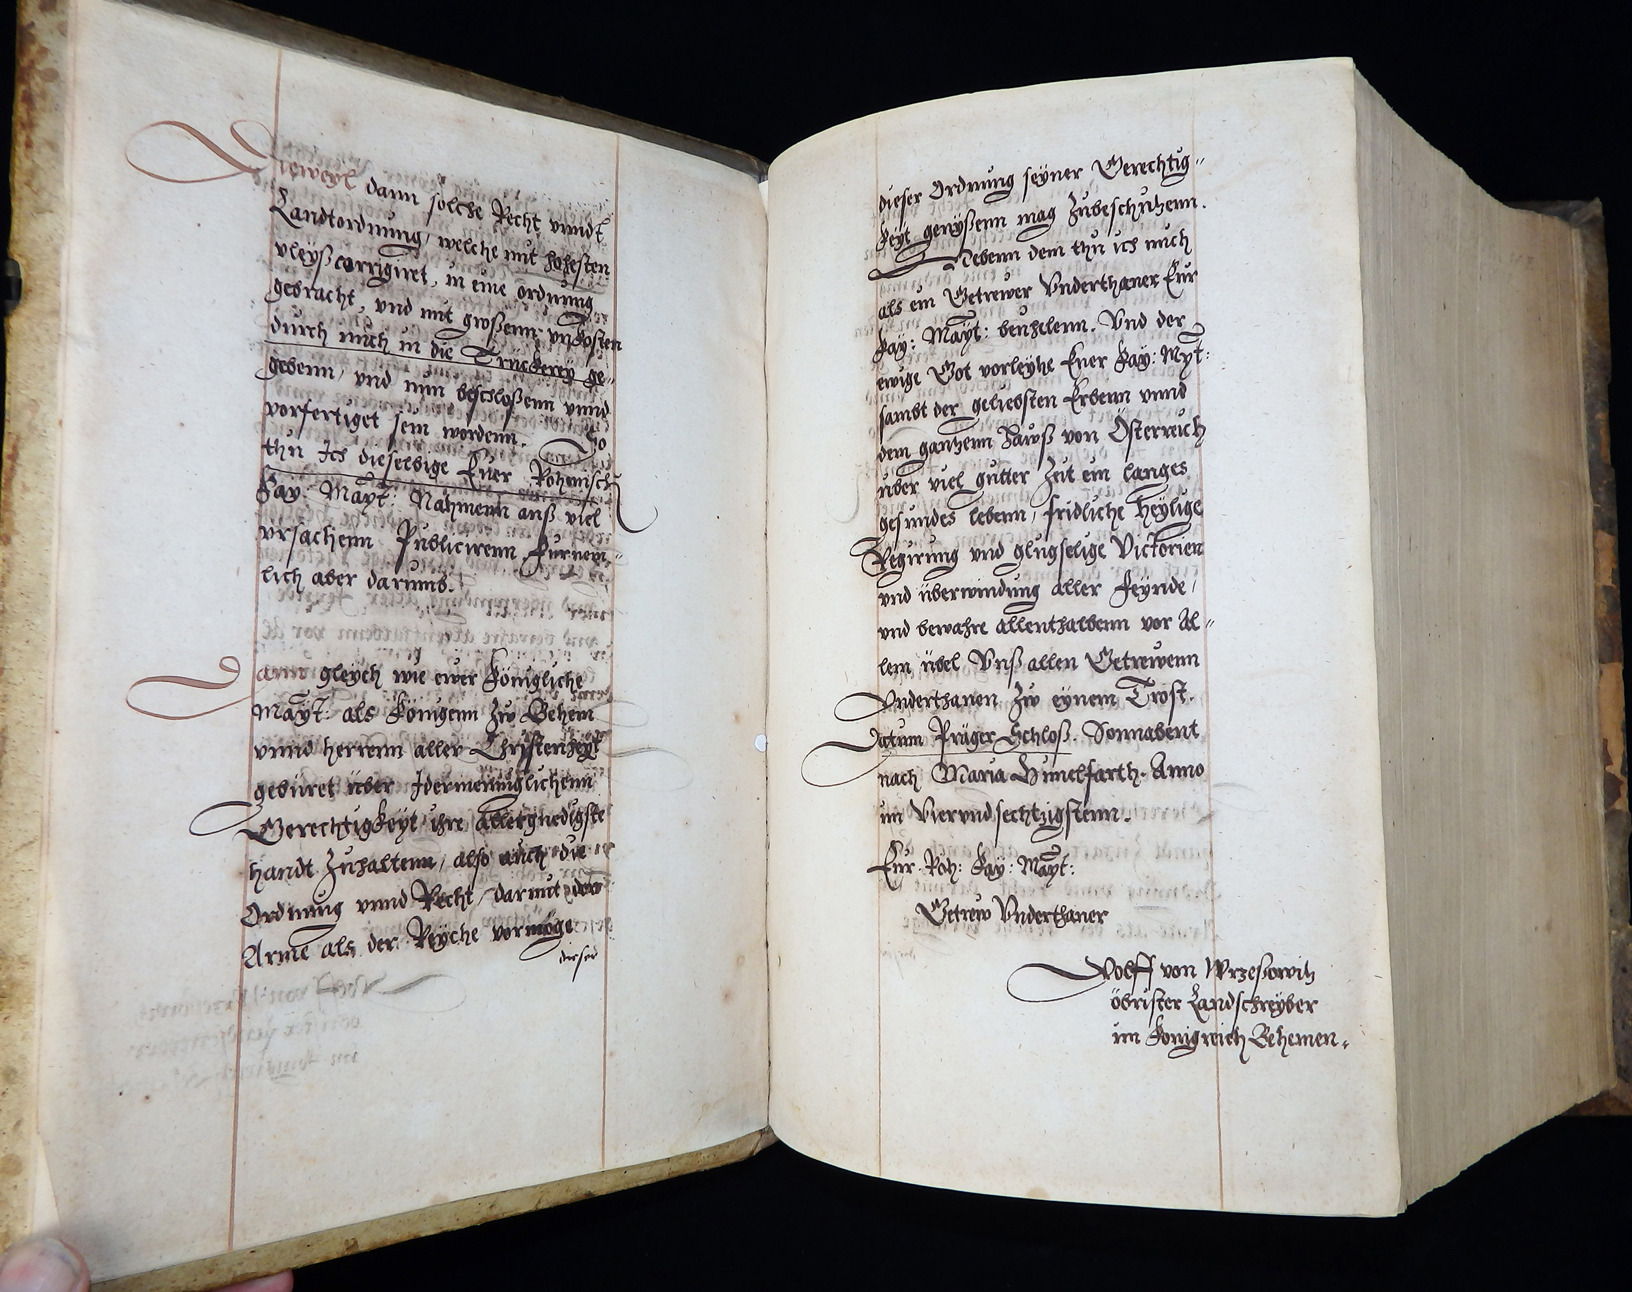 Dieweyl dann solche Recht vnndt
Landtordnung, welche mit hohesten
vleyß corrigiret, in eine ordnung
gebracht, vnd mit großenn vnkosten
durch mich in die Trückerey ge„
gebenn, vnd nun beschloßenn vnnd
vorfertiget sein wordenn. So
thu Ich dieselbige Euer Rohemisch
Kay: Mayt: Nahmenn auß viel
vrsachenn Publicirenn Furnem„
lich aber darumb.
Dann gleych wie ewer Königliche
Mayt: als Königenn zw Behem
vnnd herrenn aller Christenheyt
gebüret über Idermenniglichenn
Gerechtigkeyt ihre allergnedigste
handt Zuhaltenn, also auch die
Ordnung vnnd Recht, darmit der
Arme als der Reyche vormöge
dieser
dieser Ordnung seyner Gerechtig„
keyt genyßenn mag Zubeschutzenn.
Nebenn dem thu ich mich
als ein Getrewer Vnderthaner Eur
Kay: Mayt: beuhelenn. Vnd der
ewige Got vorleyhe Euer Kay: Myt:
sambt der geliebsten Erbenn vnnd
dem gantzenn Hawß von Österreich
über viel gutter Zeit ein langes
gesundes lebenn, fridliche Heylige
Regirung vnd glugselige Victorien
vnd überwindung aller Feynde,
vnd bewahre allenthalbenn vor Al„
lem übel Vnß allen Getrewenn
Vnderthanen Zw eynem Trost.
Datum Präger Schloß. Sonnabent
nach Maria Himelfarth. Anno
im Vierundsechtzigstenn.
Eur Röh: Kay: Mayt:
Getrew Vnderthaner
Wolff von Wrzesowitz
öbrister Landschreyber
im Königreich Behemen.